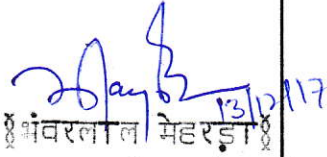 13/12/17
॰भंवरलाल मेहरड़ा॰